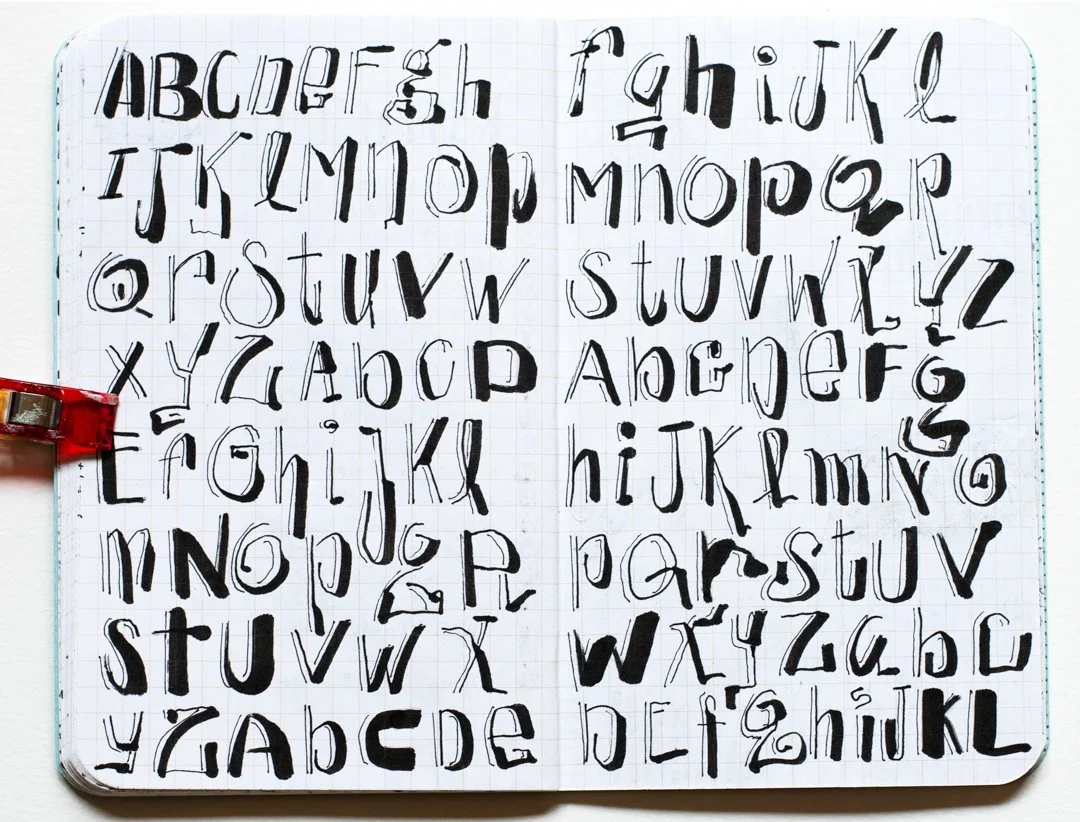 ABCDeFgh
IJKlMnOp
QrStUVW
XYZAbCD
EfGhiJKl
mNOpQR
StUVWX
yZAbCDe
fghiJKl
MnOpQR
StUVWXYZ
AbCDeFG
hiJKlmNO
pQrStUV
WXYZabC
DEfGhiJKL